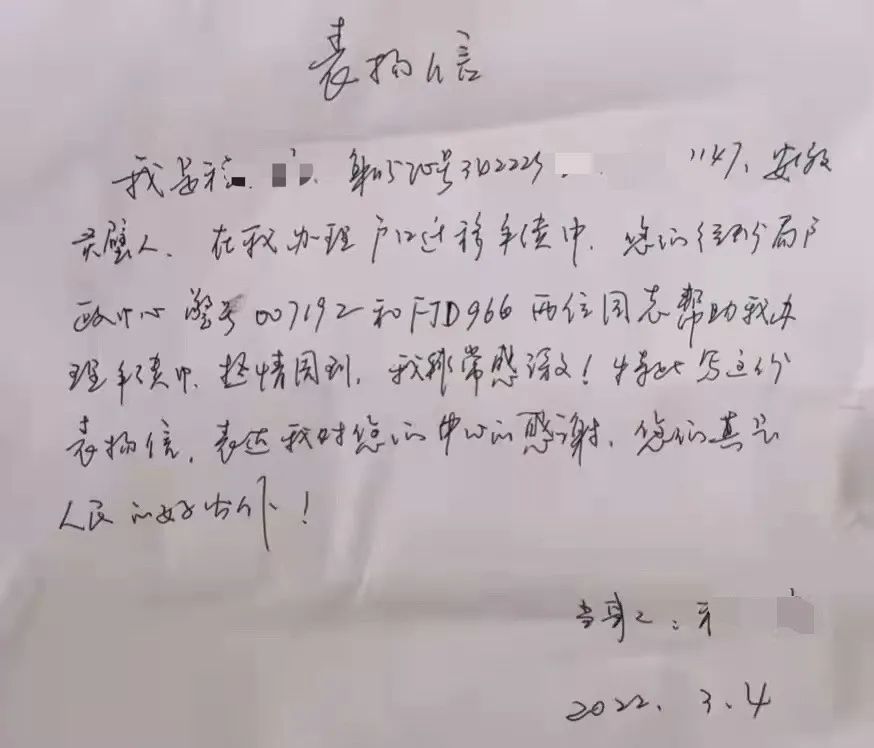 表扬信
我是程 身份证号342225 1147、安徽
灵璧人、在我办理户口迁移手续中、您们经开分局户
政中心警号007192和FJD966两位同志帮助我办
理手续中、热情周到、我非常感激！特此写这份
表扬信、表达我对您们衷心的感谢、您们真是
人民的好
当事人：
2022.3.4